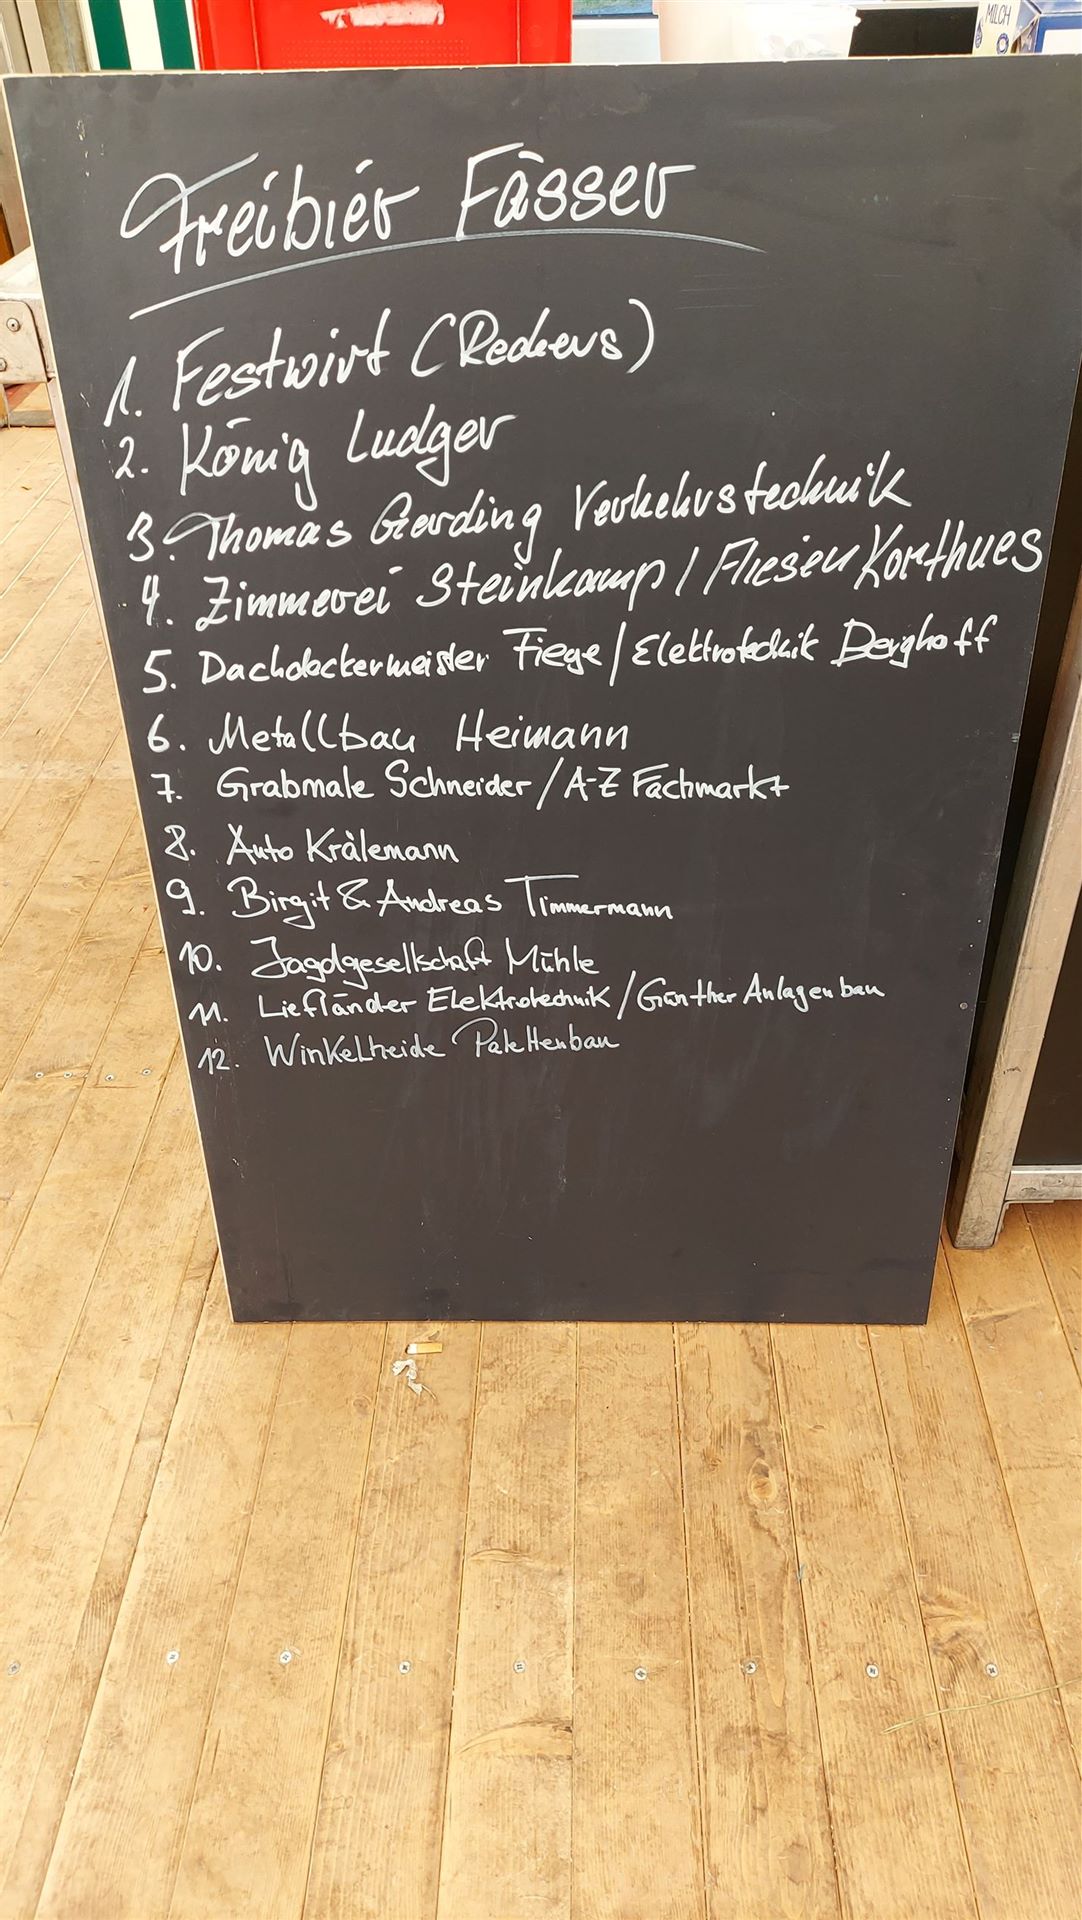 MILCH
Freibier Fässer
1. Festwirt (Reckers)
2. König Ludger
3. Thomas Gerding Verkehrstechnik
4. Zimmerei Steinkamp / Fliesen Korthues
5. Dachdeckermeister Fiege / Elektrotechnik Berghoff
6. Metallbau Heimann
7. Grabmale Schneider / A-Z Fachmarkt
8. Auto Krälemann
9. Birgit & Andreas Timmermann
10. Jagdgesellschaft Mühle
11. Liefländer Elektrotechnik / Günther Anlagenbau
12. Winkelheide Palettenbau